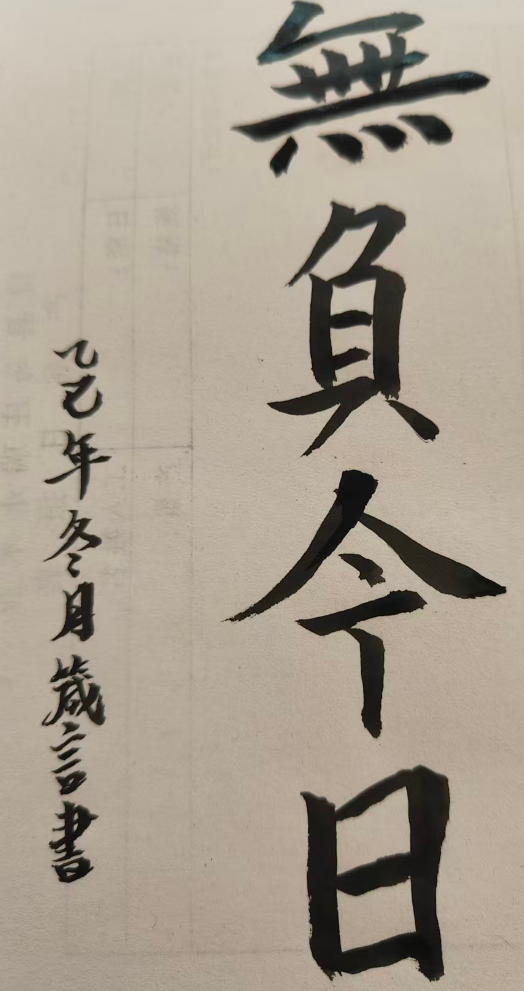 無負今日
乙巳年冬月箴言書